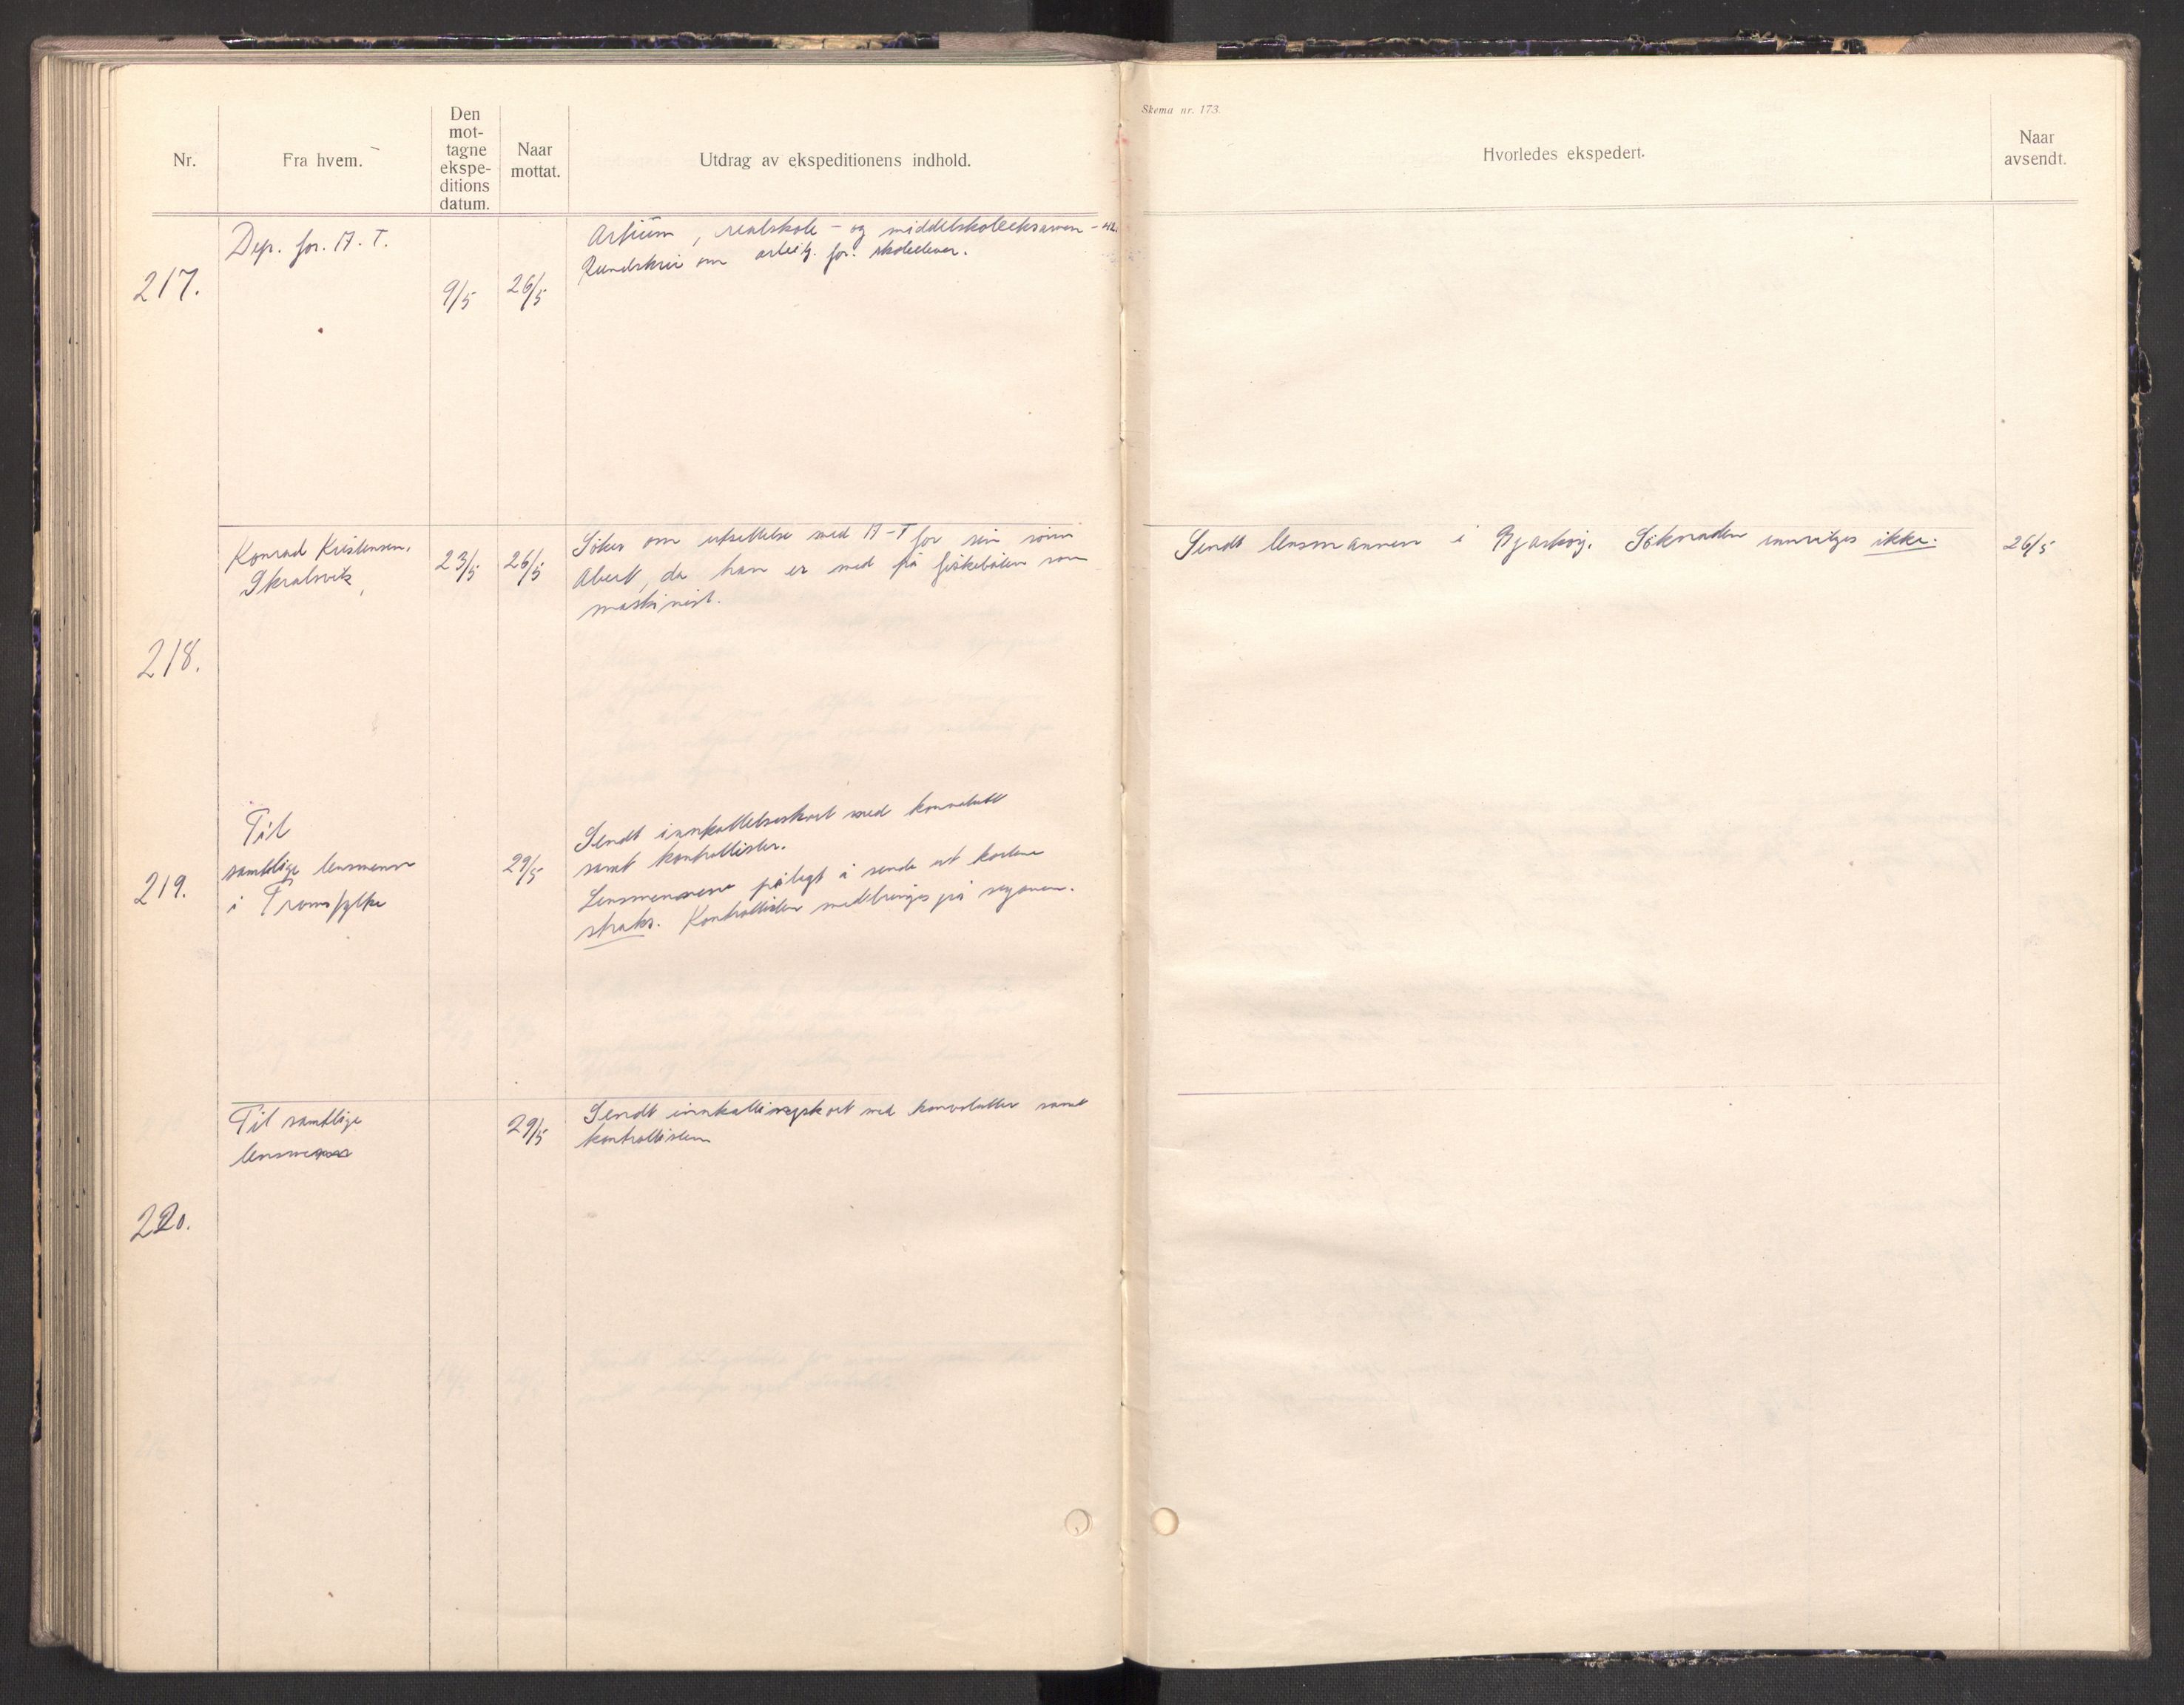 Nr.
Fra hvem.
Den
mot-
tagne
ekspe-
ditions
datum.
Naar
mottat.
Utdrag av ekspeditionens indhold.
Skema nr. 173.
Hvorledes ekspedert.
Naar
avsendt.
217.
Dep. for. A. T.
9/5
26/5
Artium, realskole - og middelskoleeksamen - 42.
Rundskriv om arbeidstj. for. skoleelever.
218.
Konrad Kristensen,
Skrolsvik,
23/5
26/5
Søker om utsettelse med A-T for sin sønn
Albert, da han er med på fiskebåten som
maskinist.
Sendt lensmannen i Bjarkøy. Søknaden innvilges ikke.
26/5
219.
Til
samtlige lensmenn
i Troms fylke
29/5
Sendt innkallelseskort med konvolutt
samt kontrollister.
Lensmennene pålagt å sende ut kortene
straks. Kontrollisten medbringes på sesjonen.
220.
Til samtlige
lensmenn
29/5
Sendt innkallingskort med konvolutter samt
kontrollisten